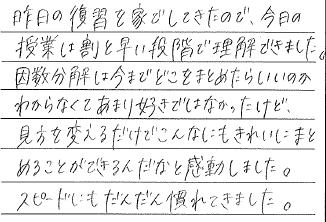 昨日の復習を家でしてきたので、今日の
授業は割と早い段階で理解できました。
因数分解は今までどこをまとめたらいいのか
わからなくてあまり好きではなかったけど、
見方を変えるだけでこんなにもきれいにまと
めることができるんだなと感動しました。
スピードにもだんだん慣れてきました。